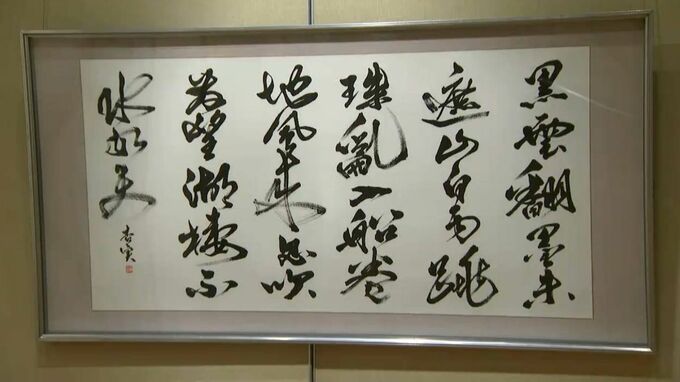 黒雲翻墨未
遮山白雨跳
珠亂入船巻
地風来忽吹
散望湖樓下
水如天